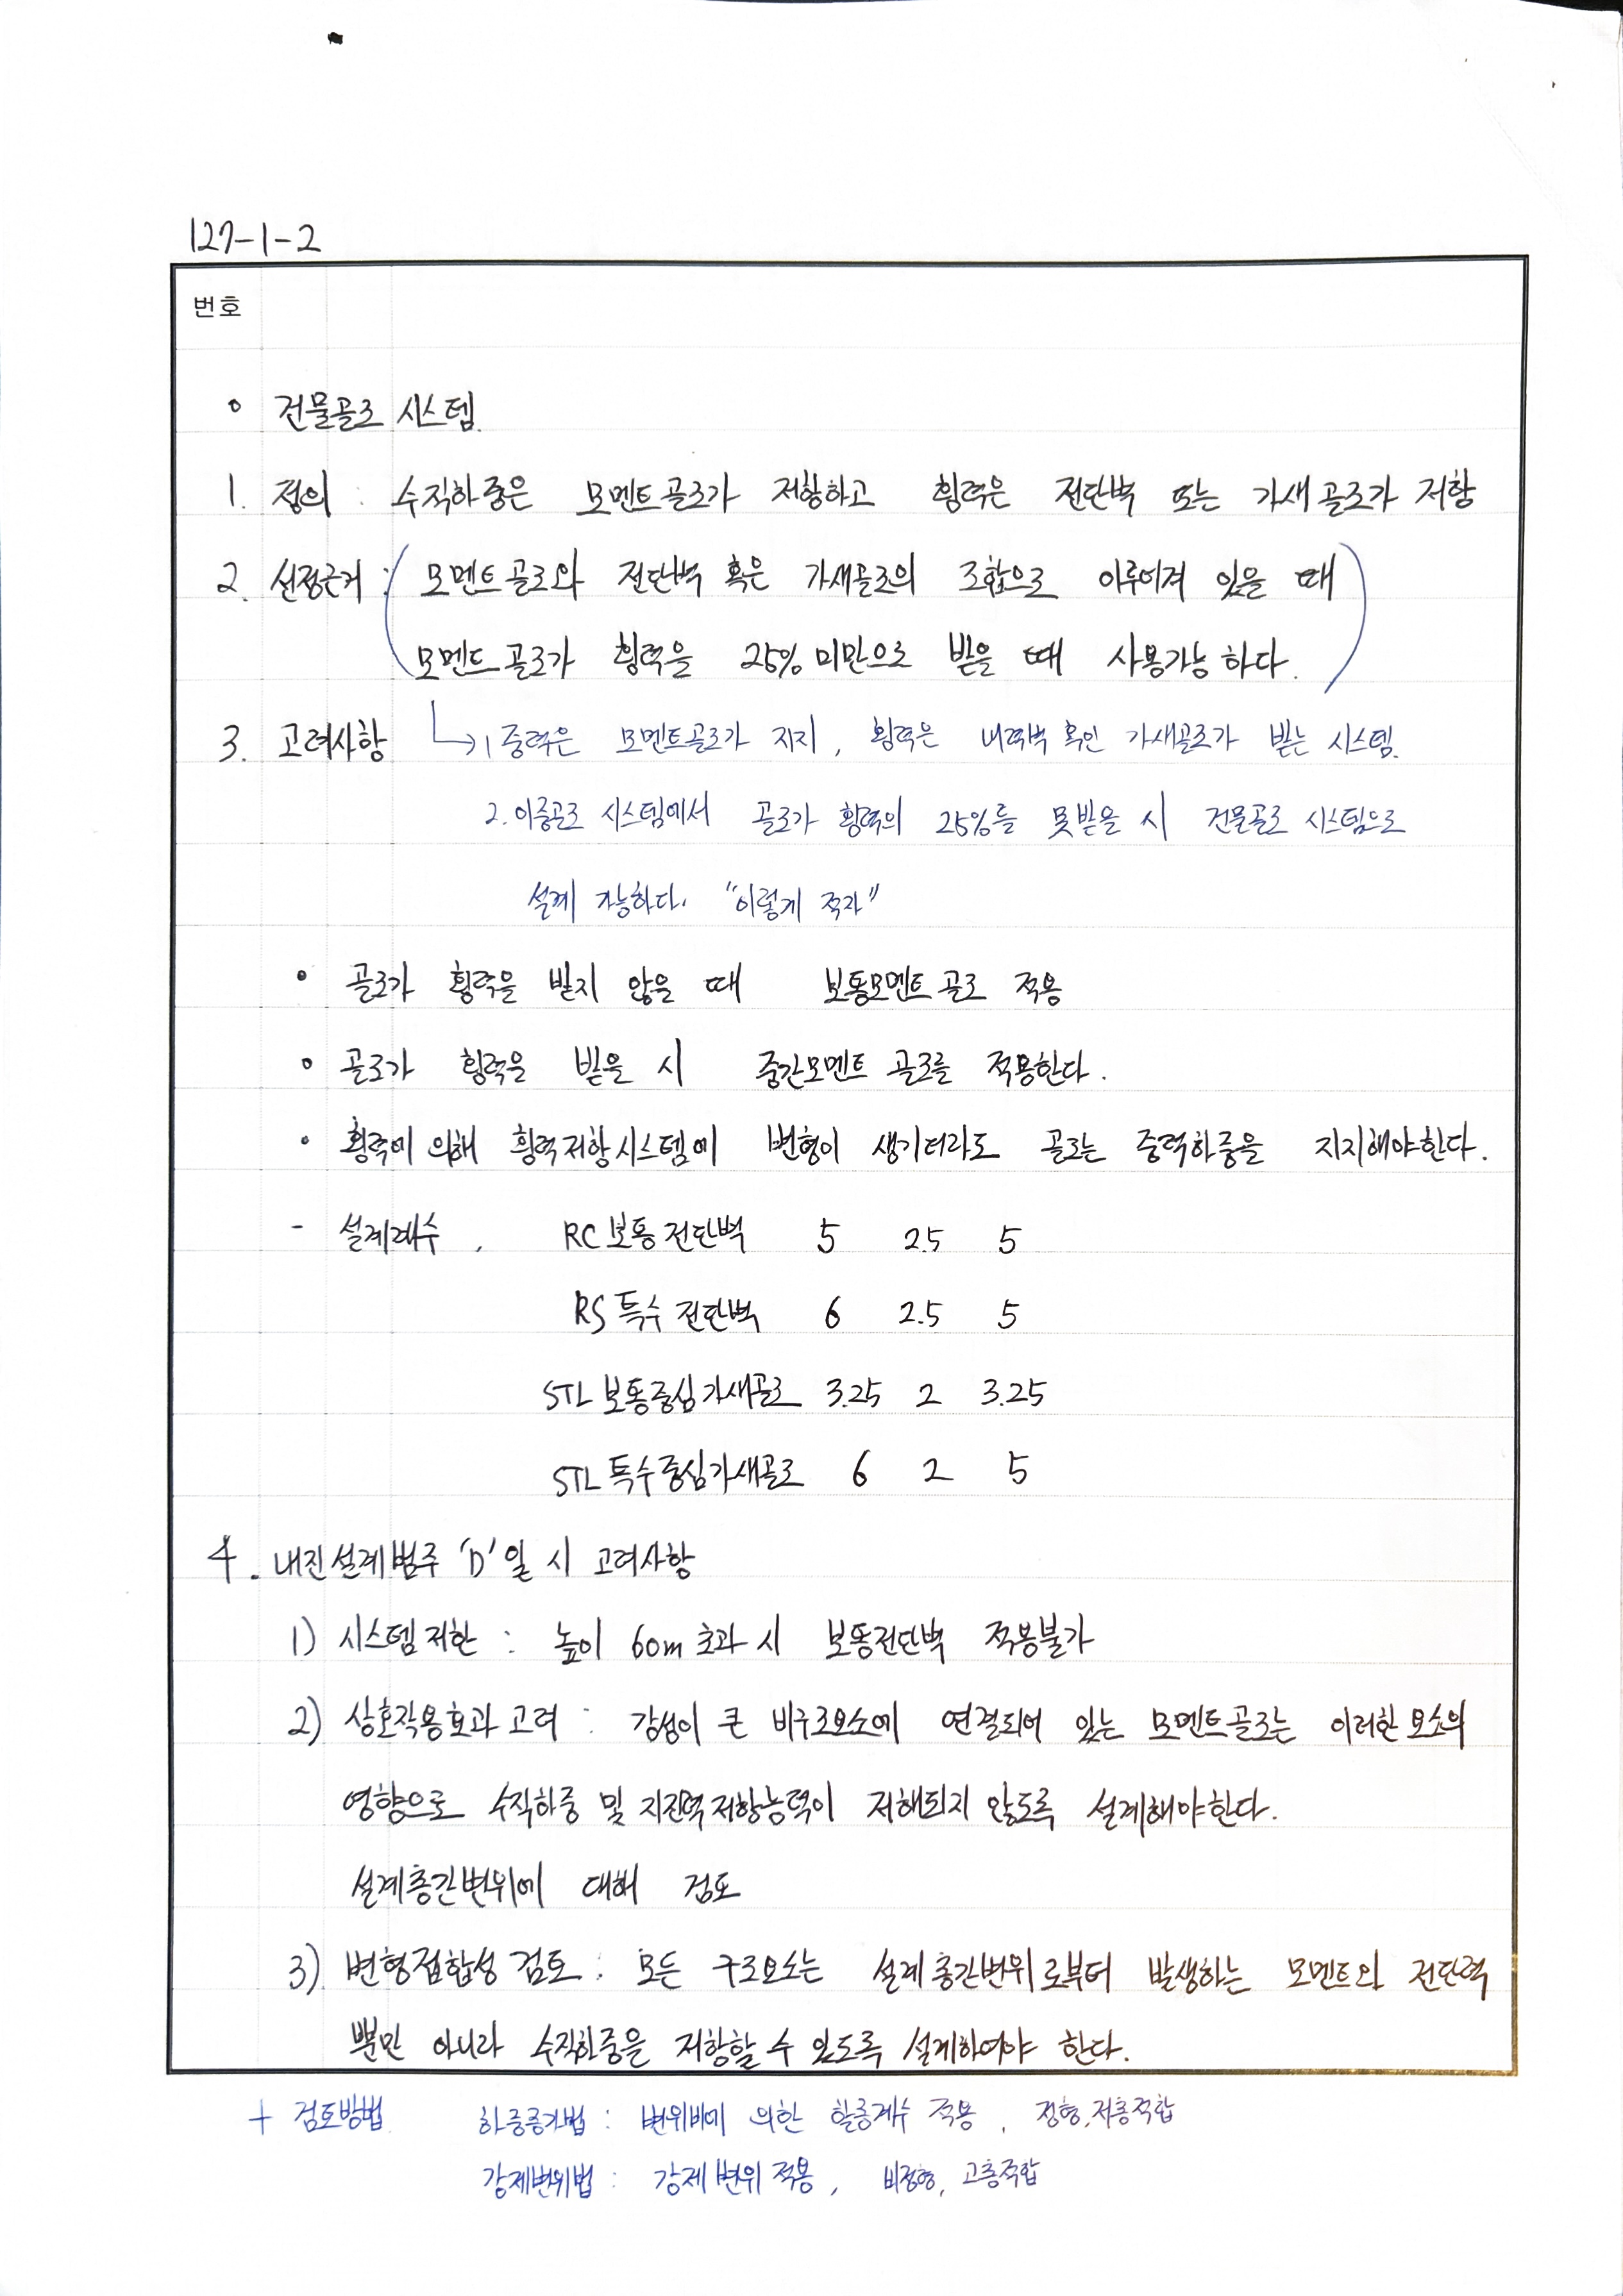 127-1-2
번호
• 건물골조 시스템.
1. 정의 : 수직하중은 모멘트골조가 저항하고 횡력은 전단벽 또는 가새골조가 저항
2. 선정근거 : 모멘트골조와 전단벽 혹은 가새골조의 조합으로 이루어져 있을 때
모멘트골조가 횡력을 25% 미만으로 받을 때 사용가능하다.
3. 고려사항 → 1. 중력은 모멘트골조가 지지, 횡력은 내력벽 혹은 가새골조가 받는 시스템.
2. 이중골조 시스템에서 골조가 횡력의 25%를 못받을 시 건물골조 시스템으로
설계 가능하다. "이렇게 적자"
• 골조가 횡력을 받지 않을 때 보통모멘트골조 적용
• 골조가 횡력을 받을 시 중간모멘트 골조를 적용한다.
• 횡력에 의해 횡력저항시스템에 변형이 생기더라도 골조는 중력하중을 지지해야한다.
- 설계계수, RC 보통전단벽 5 2.5 5
RS 특수전단벽 6 2.5 5
STL 보통중심가새골조 3.25 2 3.25
STL 특수중심가새골조 6 2 5
4. 내진설계범주 'D'일 시 고려사항
1) 시스템제한 : 높이 60m 초과 시 보통전단벽 적용불가
2) 상호작용효과 고려 : 강성이 큰 비구조요소에 연결되어 있는 모멘트골조는 이러한 요소의
영향으로 수직하중 및 지진력저항능력이 저해되지 않도록 설계해야한다.
설계층간변위에 대해 검토
3) 변형적합성 검토 : 모든 구조요소는 설계층간변위로부터 발생하는 모멘트와 전단력
뿐만 아니라 수직하중을 저항할 수 있도록 설계하여야 한다.
+ 검토방법 하중증가법 : 변위비에 의한 할증계수 적용, 정형, 저층적합
강제변위법 : 강제변위 적용, 비정형, 고층적합